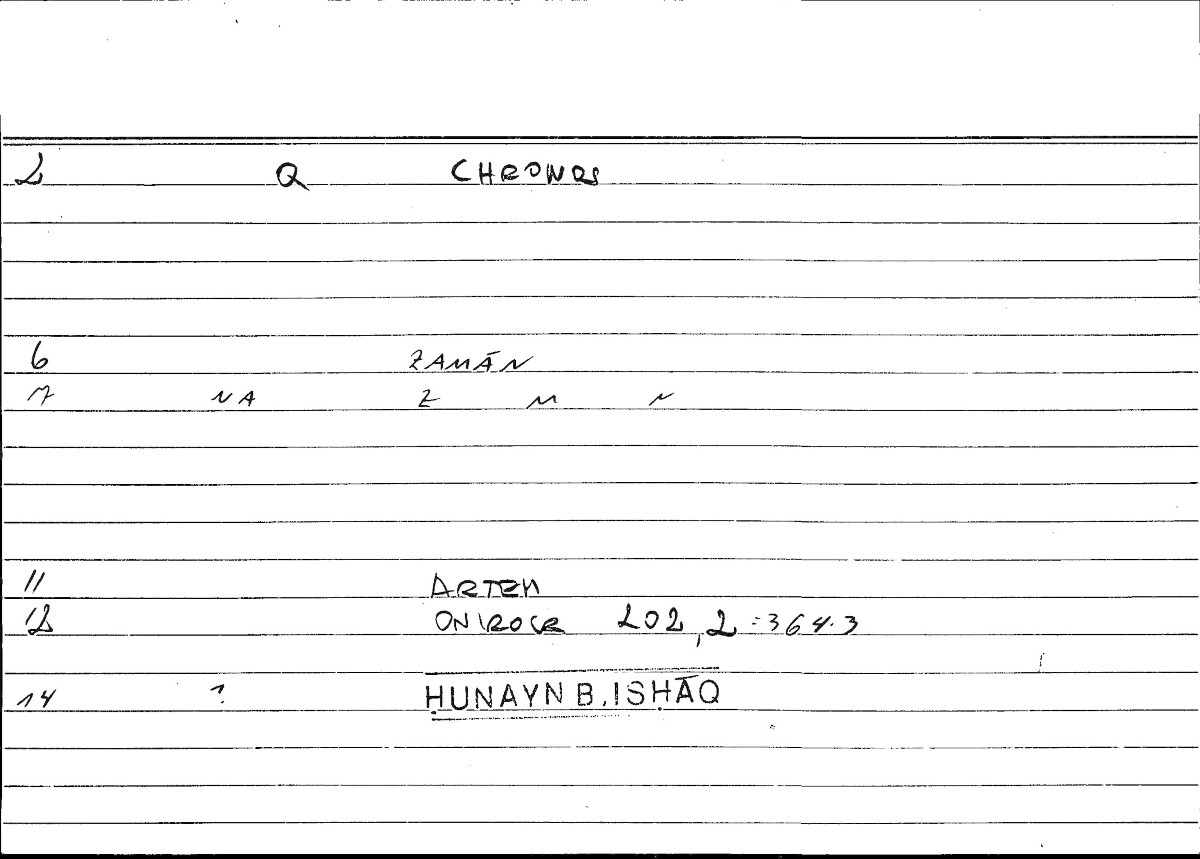 2 Q CHRONOS
6 ZAMĀN
7 NA Z M N
11 ARTEM
12 ONIROCR 202,2 = 364.3
14 ? ḤUNAYN B. ISḤĀQ